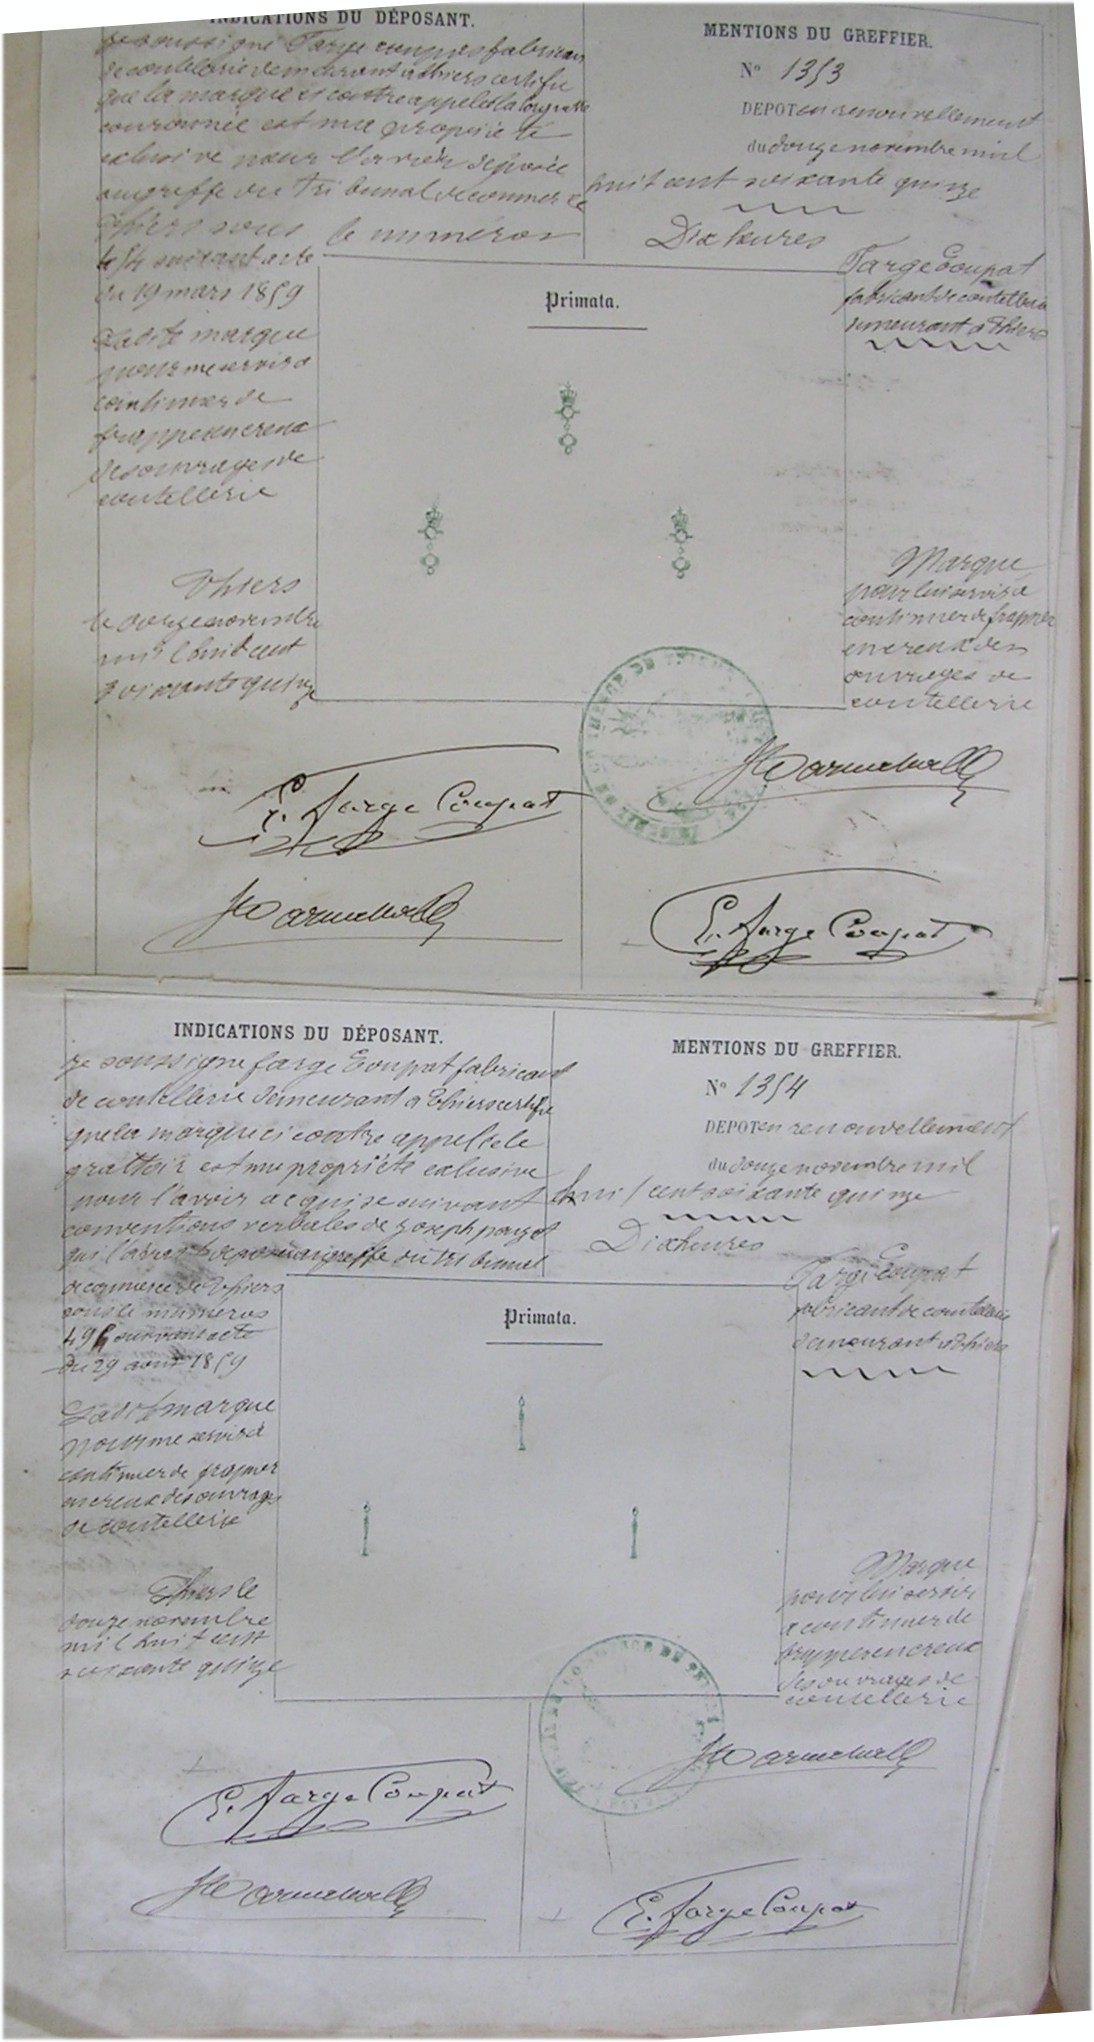 INDICATIONS DU DÉPOSANT.
je soussigné Farge coupat fabricant
de coutellerie demeurant a thiers certifie
que la marque ci contre appelée la
couronnée est ma propriété
exclusive pour l'avoir déposée
au greffe du Tribunal de commerce de
thiers sous le numéros
suivant acte
du 19 mars 1859
Ladite marque
pour me servir a
continuer de
frapper en creux
des ouvrages de
coutellerie
Thiers
le douze novembre
mil huit cent
soixante quinze
E. Farge Coupat
MENTIONS DU GREFFIER.
N° 1353
DEPOT en renouvellement
du douze novembre mil
huit cent soixante quinze
Dix heures
Farge Coupat
fabricant de coutellerie
demeurant a Thiers
Primata.
Marque
pour lui servir a
continuer de frapper
en creux des
ouvrages de
coutellerie
E. Farge Coupat
INDICATIONS DU DÉPOSANT.
je soussigne farge Coupat fabricant
de coutellerie demeurant a thiers certifie
que la marque ci contre appelée le
grattoir est ma propriété exclusive
pour l'avoir acquise suivant
conventions verbales de joseph
qui l'avait déposée au greffe du tribunal
de commerce de Thiers
sous le numéros
suivant acte
du 29 aout 1859
Ladite marque
pour me servir a
continuer de frapper
en creux des ouvrages
de coutellerie
Thiers le
douze novembre
mil huit cent
soixante quinze
E. Farge Coupat
MENTIONS DU GREFFIER.
N° 1354
DEPOT en renouvellement
du douze novembre mil
huit cent soixante quinze
Dix heures
Farge Coupat
fabricant de coutellerie
demeurant a Thiers
Primata.
Marque
pour lui servir
a continuer de
frapper en creux
des ouvrages de
coutellerie
E. Farge Coupat